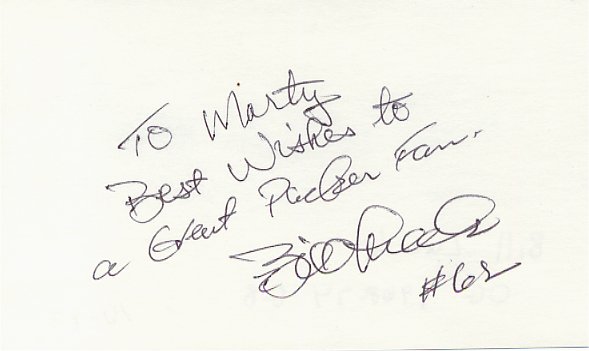 To Marty
Best Wishes to
a Great Packer Fan.
Bill Lueck
#62